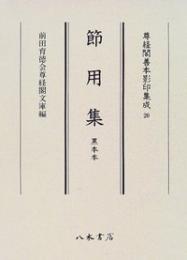 尊経閣善本影印集成 20
節用集
黒本本
前田育徳会尊経閣文庫編
八木書店